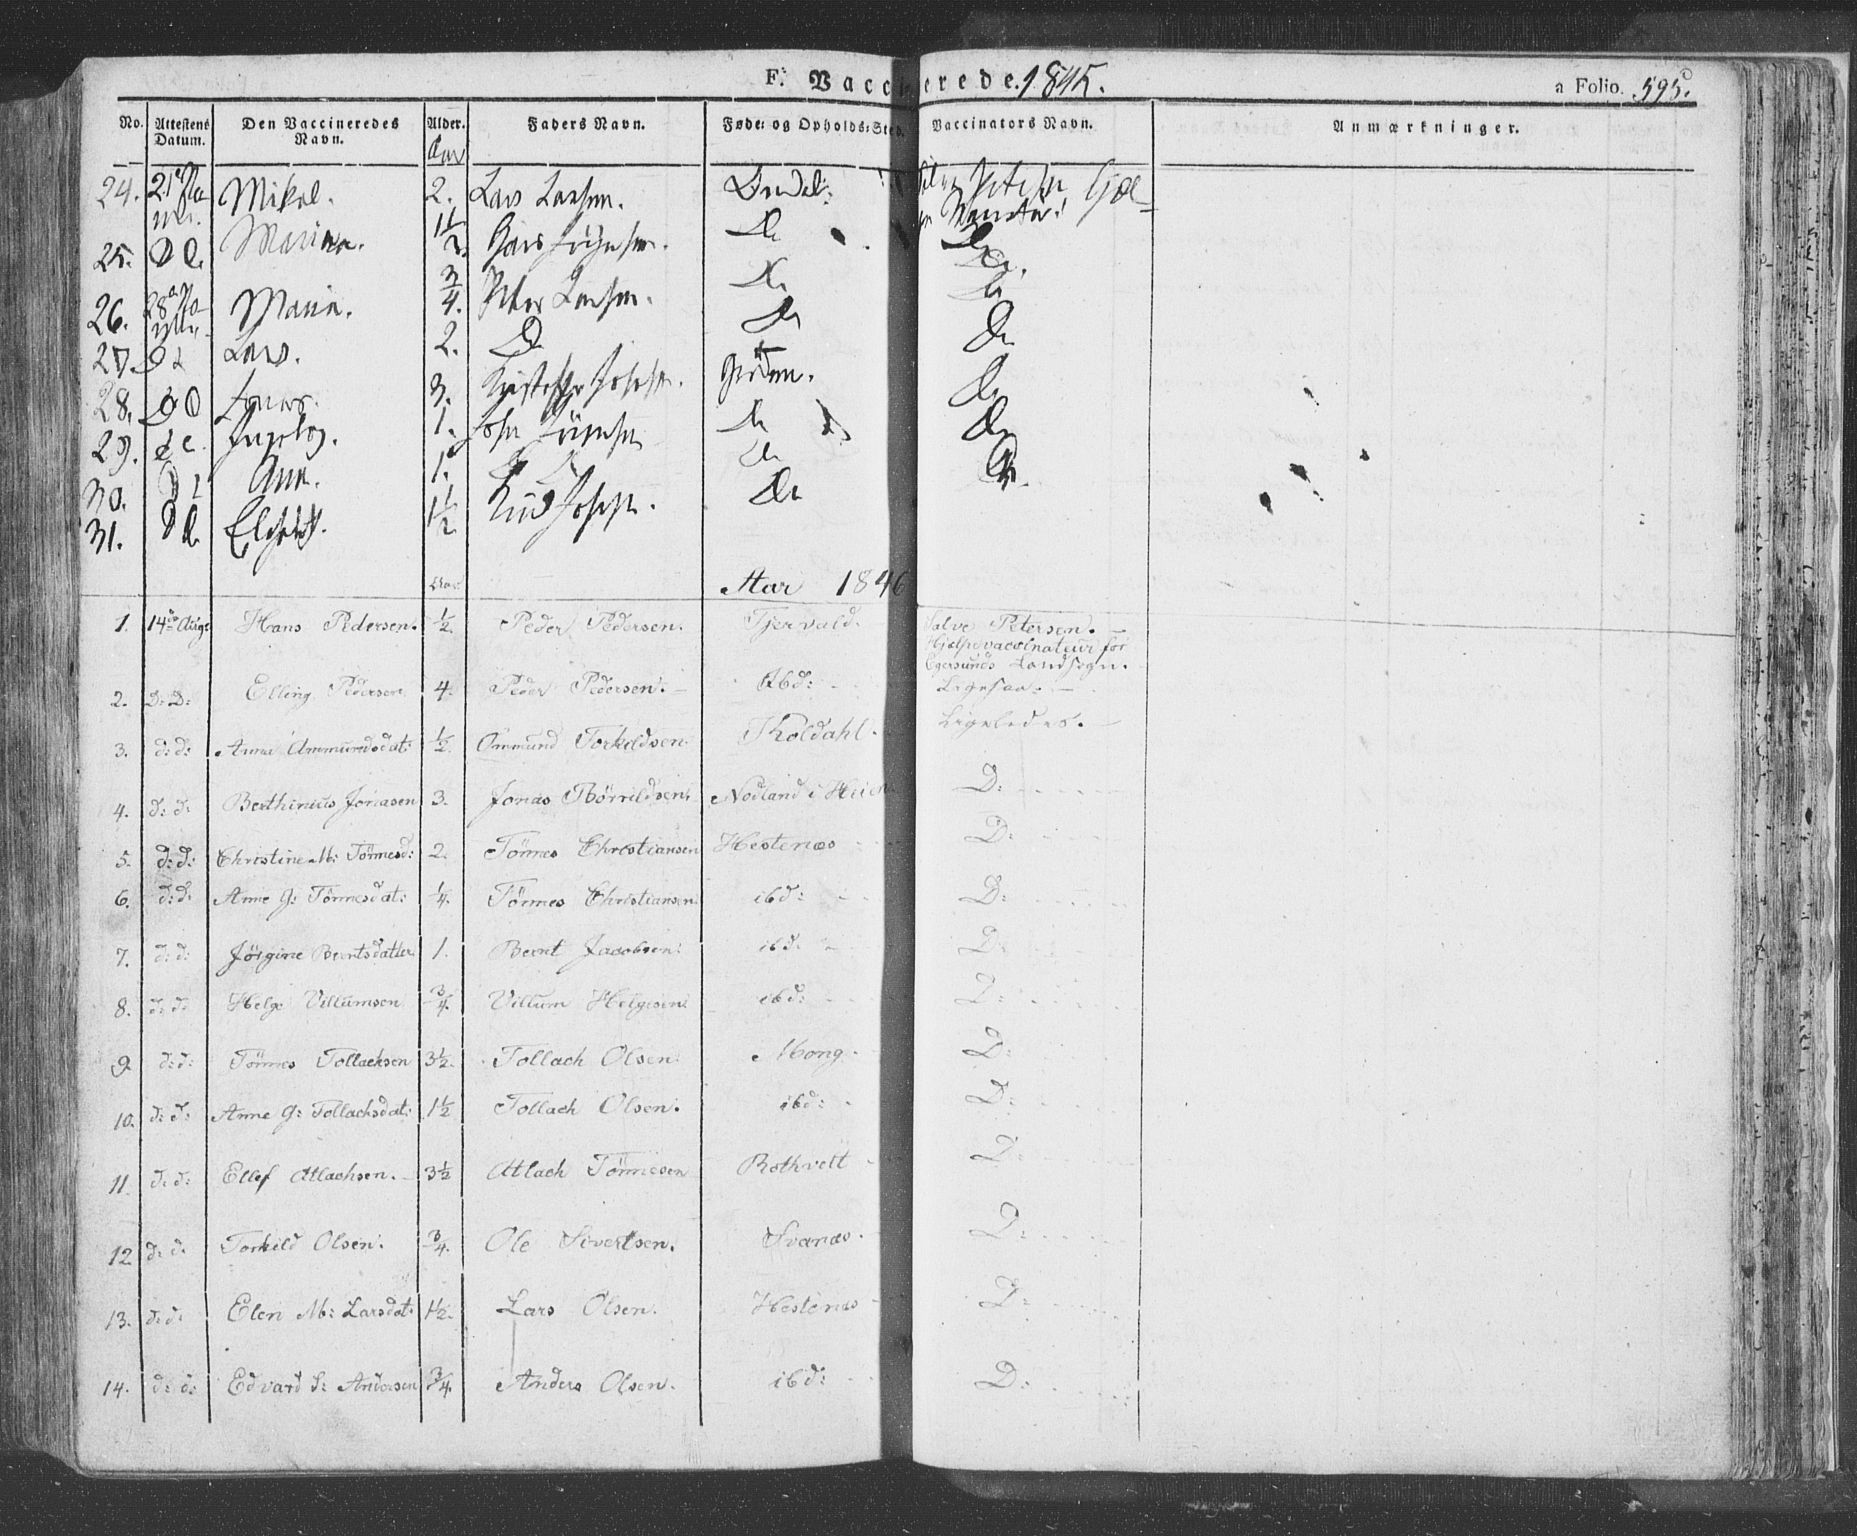 F. Vaccinerede. 1845. a Folio. 595.
No. Attestens Datum. Den Vaccineredes Navn. Alder. Faders Navn. Føde- og Opholds-Sted. Vaccinators Navn. Anmærkninger.
Aar
24. 21 Mikal. 2. Lars Larsen.
25. D D. 1 1/2
26. 28 Maria. 3/4. Peter Larsen. Do Do
27. D D Lars. 2. D Do Do
28. D D 3. Do
29. d d. 1. Do Do
30. D D Ann. 1. D D Do Do
31. D D 1 1/2 Do
Aar Aar 1846
1. 14de Aug: Hans Pedersen. 1/2 Peder Pedersen. Tjervald. Salve Petersen.
Hjelpevaccinateur for
Egersunds Landsogn.
2. D: D: Elling Pedersen 4. Peder Pedersen. Ibd: Ligesaa.
3. d: d: Anna Ommundsdat: 1/2. Ommund Torkildsen. Koldahl. Ligeledes.
4. d: d: Berthinius Jonasen 3. Jonas Törrildsen. Nodland i D:
5. d: d: Christine M: Törmesd: 2. Törmes Christiansen Hestenæs D:
6. d: d: Anne G: Törmesdat: 1/4. Törmes Christiansen ibd: D:
7. d: d: Jörgine Berntsdatter 1. Bernt Jacobsen. ibd: D:
8. d: d: Helge Villumsen 3/4. Villum Helgesen. ibd: D:
9. d: d: Törmes Tollachsen 3 1/2. Tollach Olsen. Mong. D:
10. d: d: Anne G: Tollachsdat: 1 1/2 Tollach Olsen. ibd: D:
11. d: d: Ellef Atlachsen. 3 1/2 Atlach Törmesen Rothvelt D:
12 d: d: Torkild Olsen. 3/4. Ole Sivertsen. Svanæs. D:
13. d: d: Elen M: Larsdat: 1 1/2. Lars Olsen. Hestenæs D:
14. d: d: Edvard S: Andersen 3/4. Anders Olsen. ibd: D: